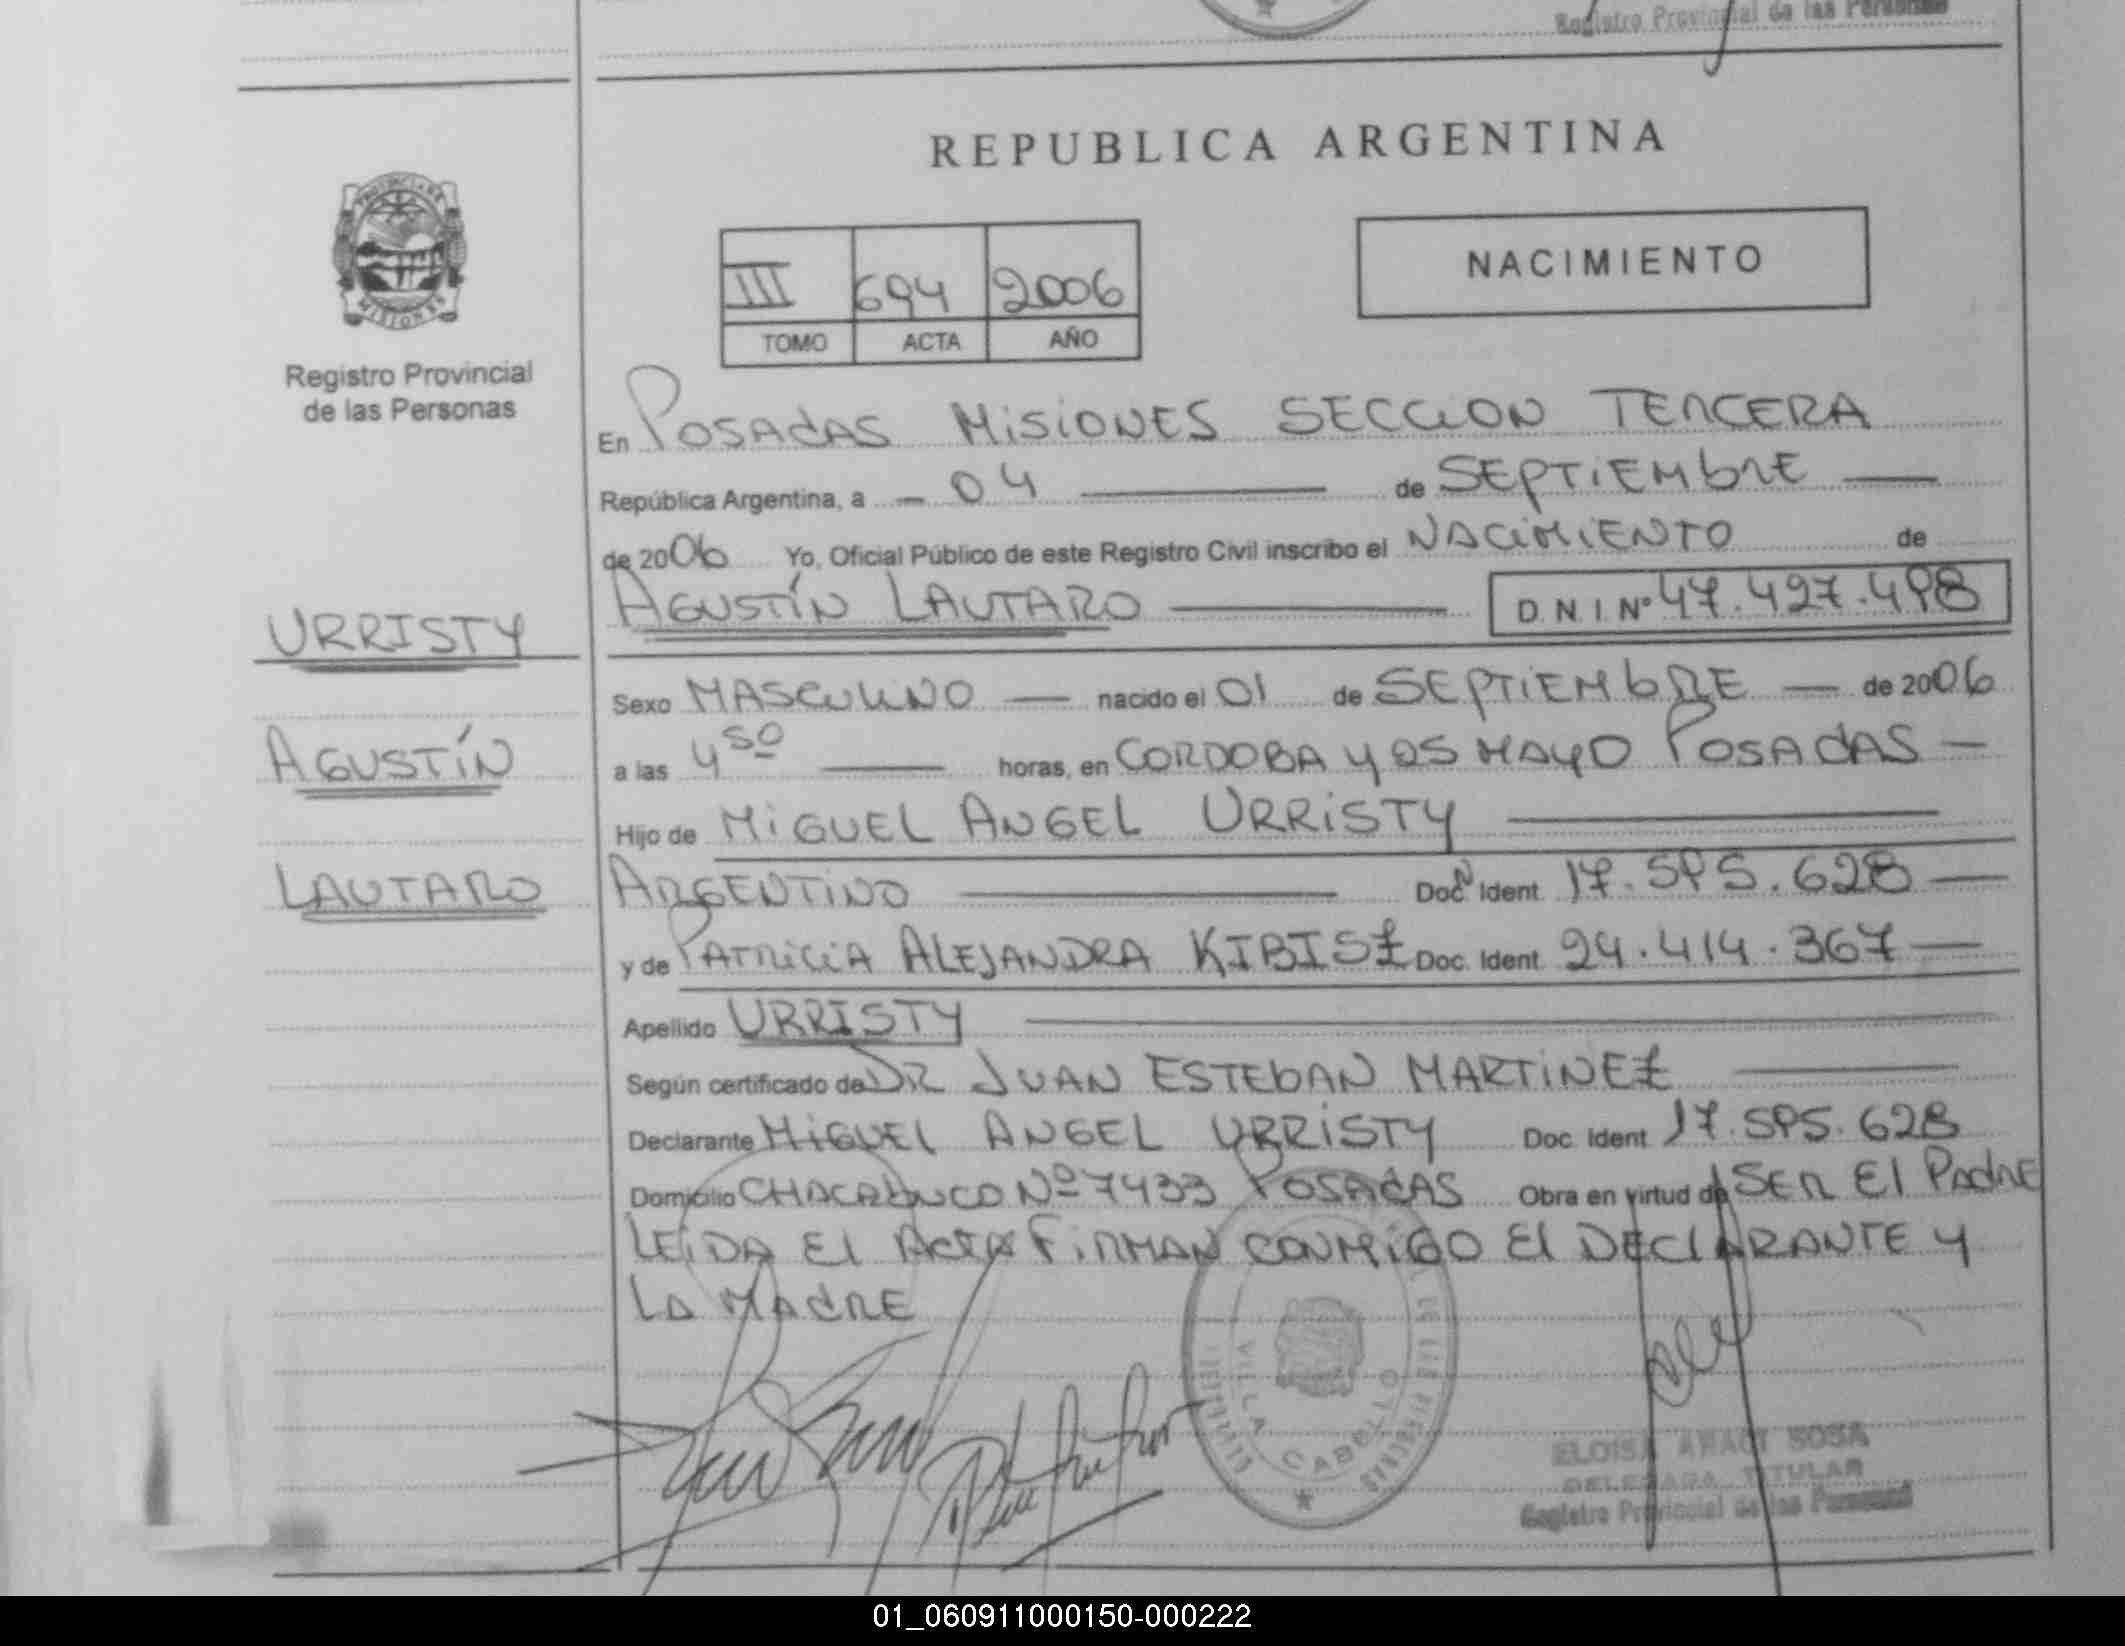 Registro Provincial de las Personas
REPUBLICA ARGENTINA
PROVINCIA DE
MISIONES
Registro Provincial
de las Personas
III 694 2006
TOMO ACTA AÑO
NACIMIENTO
En POSADAS MISIONES SECCION TERCERA
República Argentina, a - 04 de SEPTIEMbRE
de 2006 Yo, Oficial Público de este Registro Civil inscribo el NACIMIENTO de
AGUSTÍN LAUTARO D.N.I. Nº 47.427.498
URRISTY
AGUSTÍN
LAUTARO
Sexo MASCULINO nacido el 01 de SEPTIEMbRE de 2006
a las 4 50 horas, en CORDOBA y 25 MAYO POSADAS
Hijo de MIGUEL ANGEL URRISTY
ARGENTINO Doc. Ident. 17.595.628
y de PATRICIA ALEJANDRA KIBISZ Doc. Ident. 24.414.367
Apellido URRISTY
Según certificado de DR JUAN ESTEbAN MARTINEZ
Declarante MIGUEL ANGEL URRISTY Doc. Ident 17.595.628
Domicilio CHACABUCO Nº 7433 POSADAS Obra en virtud de SER El PAdRE
LEIDA El ACTA FIRMAN CONMIGO El DECLARANTE y
LA MAdRE
VILLA CABELLO
ELOISA ARACI SOSA
DELEGADA TITULAR
Registro Provincial de las Personas
01_060911000150-000222